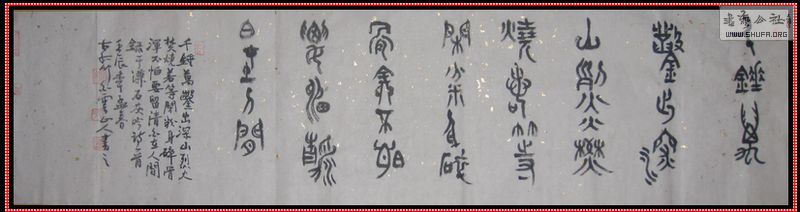 書法公社
WWW.SHUFA.ORG
千錘萬
鑿出深
山烈火焚
燒若等
閑粉身碎
骨渾不怕
要留清
白在人間
千錘萬鑿出深山烈火
焚燒若等閑粉身碎骨
渾不怕要留清白在人間
錄于謙石灰吟詩一首
壬辰年孟春
山人書之